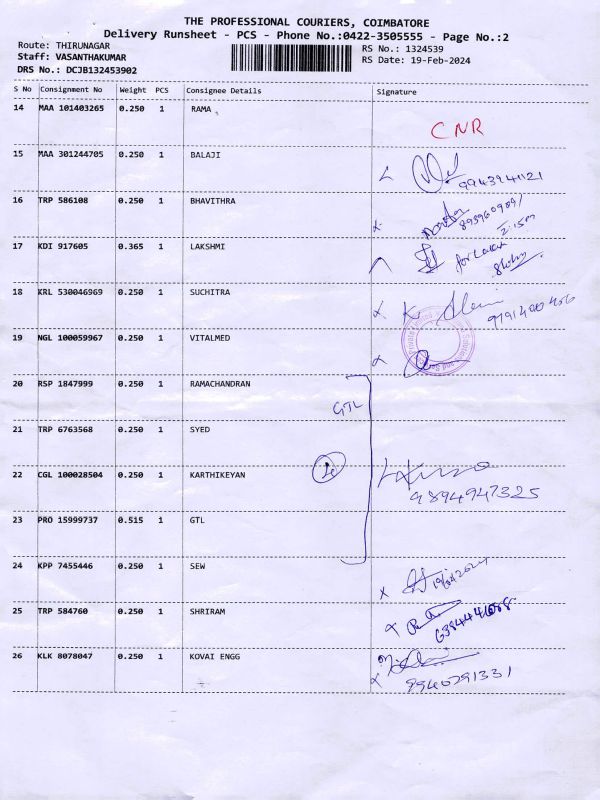 THE PROFESSIONAL COURIERS, COIMBATORE
Delivery Runsheet - PCS - Phone No.:0422-3505555 - Page No.:2
Route: THIRUNAGAR
RS No.: 1324539
Staff: VASANTHAKUMAR
RS Date: 19-Feb-2024
DRS No.: DCJB132453902
S No Consignment No Weight PCS Consignee Details Signature
14 MAA 101403265 0.250 1 RAMA
CNR
15 MAA 301244705 0.250 1 BALAJI
9943941121
16 TRP 586108 0.250 1 BHAVITHRA
2.15m
17 KDI 917605 0.365 1 LAKSHMI
for
18 KRL 530046969 0.250 1 SUCHITRA
19 NGL 100059967 0.250 1 VITALMED
Private Limited
20 RSP 1847999 0.250 1 RAMACHANDRAN
GTL
21 TRP 6763568 0.250 1 SYED
22 CGL 100028504 0.250 1 KARTHIKEYAN
9894947325
23 PRO 15999737 0.515 1 GTL
24 KPP 7455446 0.250 1 SEW
25 TRP 584760 0.250 1 SHRIRAM
26 KLK 8078047 0.250 1 KOVAI ENGG
9940291331